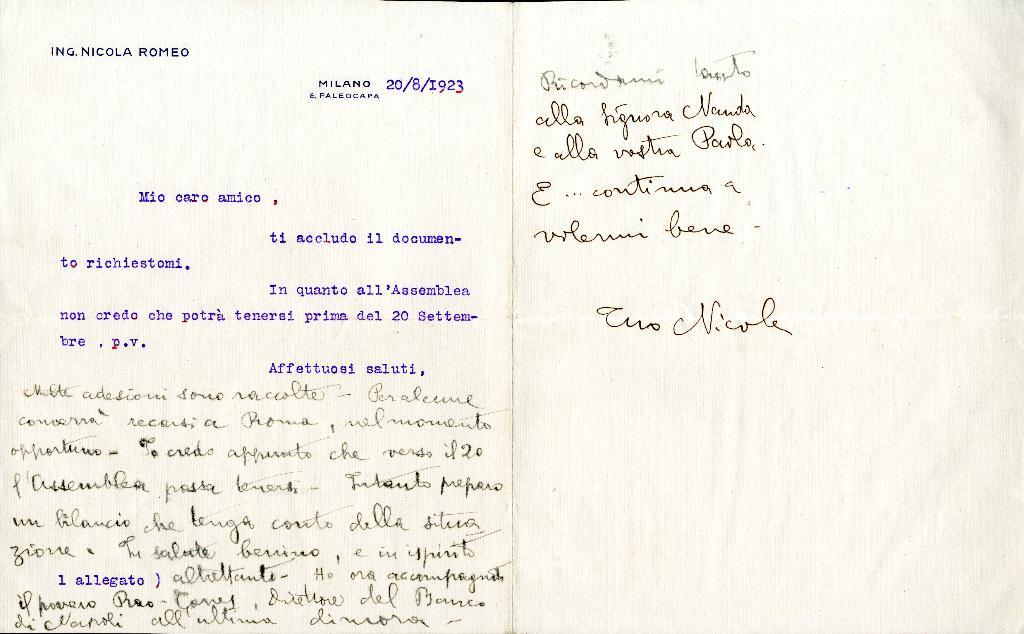 ING. NICOLA ROMEO
MILANO 20/8/1923
6. PALEOCAPA
Mio caro amico ,
ti accludo il documen-
to richiestomi.
In quanto all'Assemblea
non credo che potrà tenersi prima del 20 Settem-
bre , p.v.
Affettuosi saluti,
Molte adesioni sono raccolte - Per alcune
converrà recarsi a Roma, nel momento
opportuno - Io credo appunto che verso il 20
l'Assemblea possa tenersi - Intanto preparo
un bilancio che tenga conto della situa
zione. In salute benino, e in ispirito
1 allegato ) altrettanto - Ho ora accompagnato
il povero Direttore del Banco
di Napoli all'ultima dimora -
Ricordami tanto
alla Signora Nanda
e alla vostra Paola.
E ... continua a
volermi bene -
Tuo Nicola